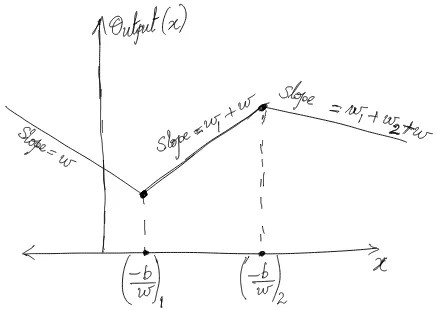 Output(x)
Slope = w
Slope = w₁ + w
Slope = w₁ + w₂ + w
x
(-b/w)₁
(-b/w)₂